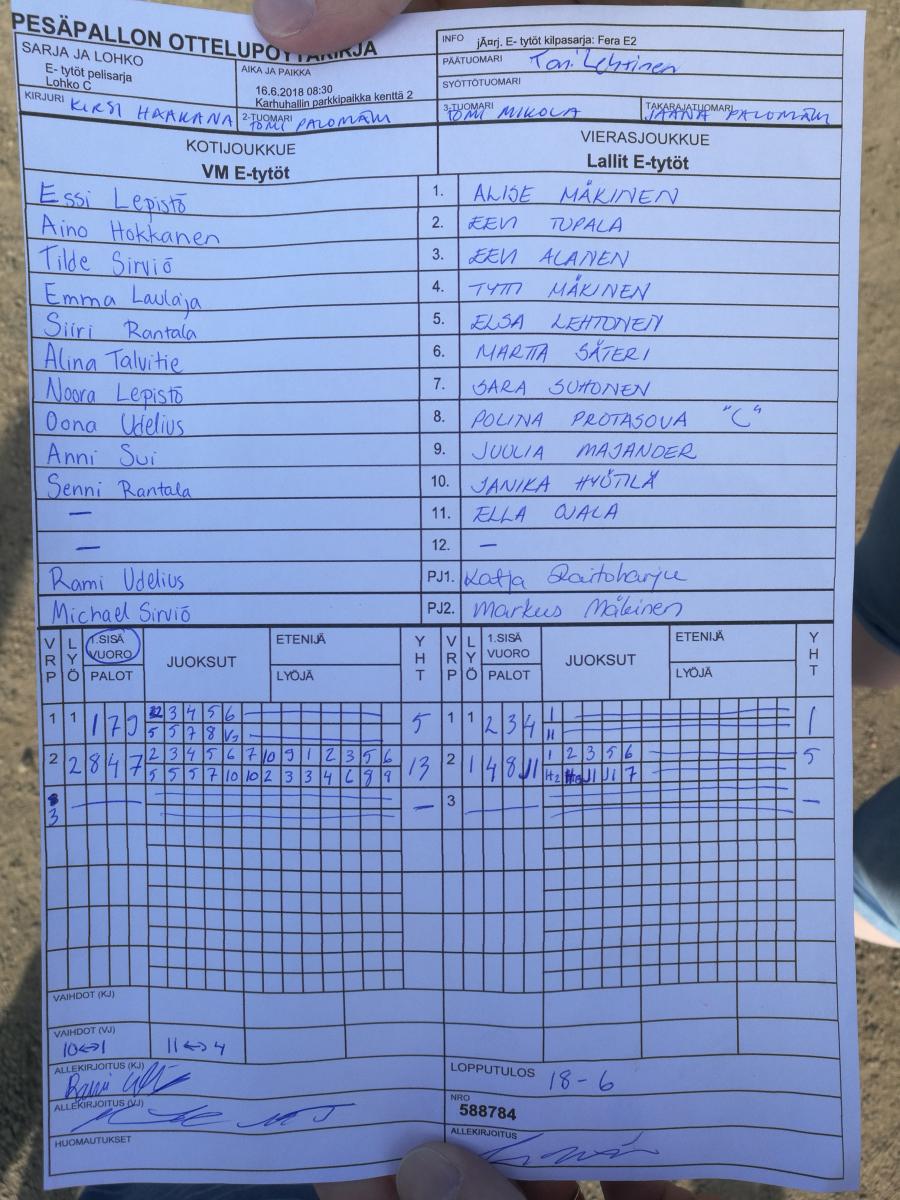 PESÄPALLON OTTELUPÖYTÄKIRJA
SARJA JA LOHKO
E- tytöt pelisarja
Lohko C
AIKA JA PAIKKA
16.6.2018 08:30
Karhuhallin parkkipaikka kenttä 2
INFO jÃ¤rj. E- tytöt kilpasarja: Fera E2
PÄÄTUOMARI Toni Lehtinen
SYÖTTÖTUOMARI
KIRJURI KIRSI HAAKANA
2-TUOMARI TOMI PALOMÄKI
3-TUOMARI TOMI MIKOLA
TAKARAJATUOMARI JAANA PALOMÄKI
KOTIJOUKKUE
VM E-tytöt
VIERASJOUKKUE
Lallit E-tytöt
Essi Lepistö 1. ALISE MÄKINEN
Aino Hokkanen 2. EEVI TUPALA
Tilde Sirviö 3. EEVI ALANEN
Emma Laulaja 4. TYTTI MÄKINEN
Siiri Rantala 5. ELSA LEHTONEN
Alina Talvitie 6. MARTTA SÄTERI
Noora Lepistö 7. SARA SUHONEN
Oona Udelius 8. POLINA PROTASOVA "C"
Anni Sui 9. JUULIA MAJANDER
Senni Rantala 10. JANIKA HYÖTILÄ
— 11. ELLA OJALA
— 12. —
Rami Udelius PJ1. Katja Raitoharju
Michael Sirviö PJ2. Markus Mäkinen
VRP LYÖ 1.SISÄ VUORO PALOT JUOKSUT ETENIJÄ LYÖJÄ YHT VRP LYÖ 1.SISÄ VUORO PALOT JUOKSUT ETENIJÄ LYÖJÄ YHT
1 1 1 7 9 2 3 4 5 6 5 1 1 2 3 4 1 1
5 5 7 8 V3 11
2 2 8 4 7 2 3 4 5 6 7 10 9 1 2 3 5 6 13 2 1 4 8 11 1 2 3 5 6 5
5 5 5 7 10 10 2 3 3 4 6 8 9 H2 J1 J1 7
3 — — 3 — —
VAIHDOT (KJ)
VAIHDOT (VJ)
10↔1 11↔4
ALLEKIRJOITUS (KJ)
LOPPUTULOS 18-6
ALLEKIRJOITUS (VJ)
NRO
588784
HUOMAUTUKSET
ALLEKIRJOITUS